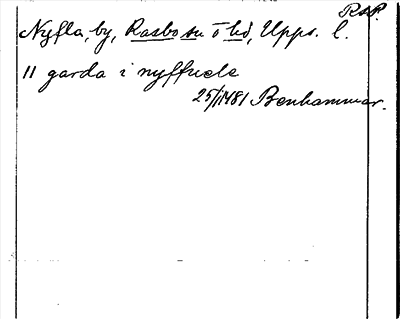 RAP.
Nyfla, by, Rasbo sn o hd, Upps. l.
11 garda i nyffucle
25/1 1481 Benhammar.